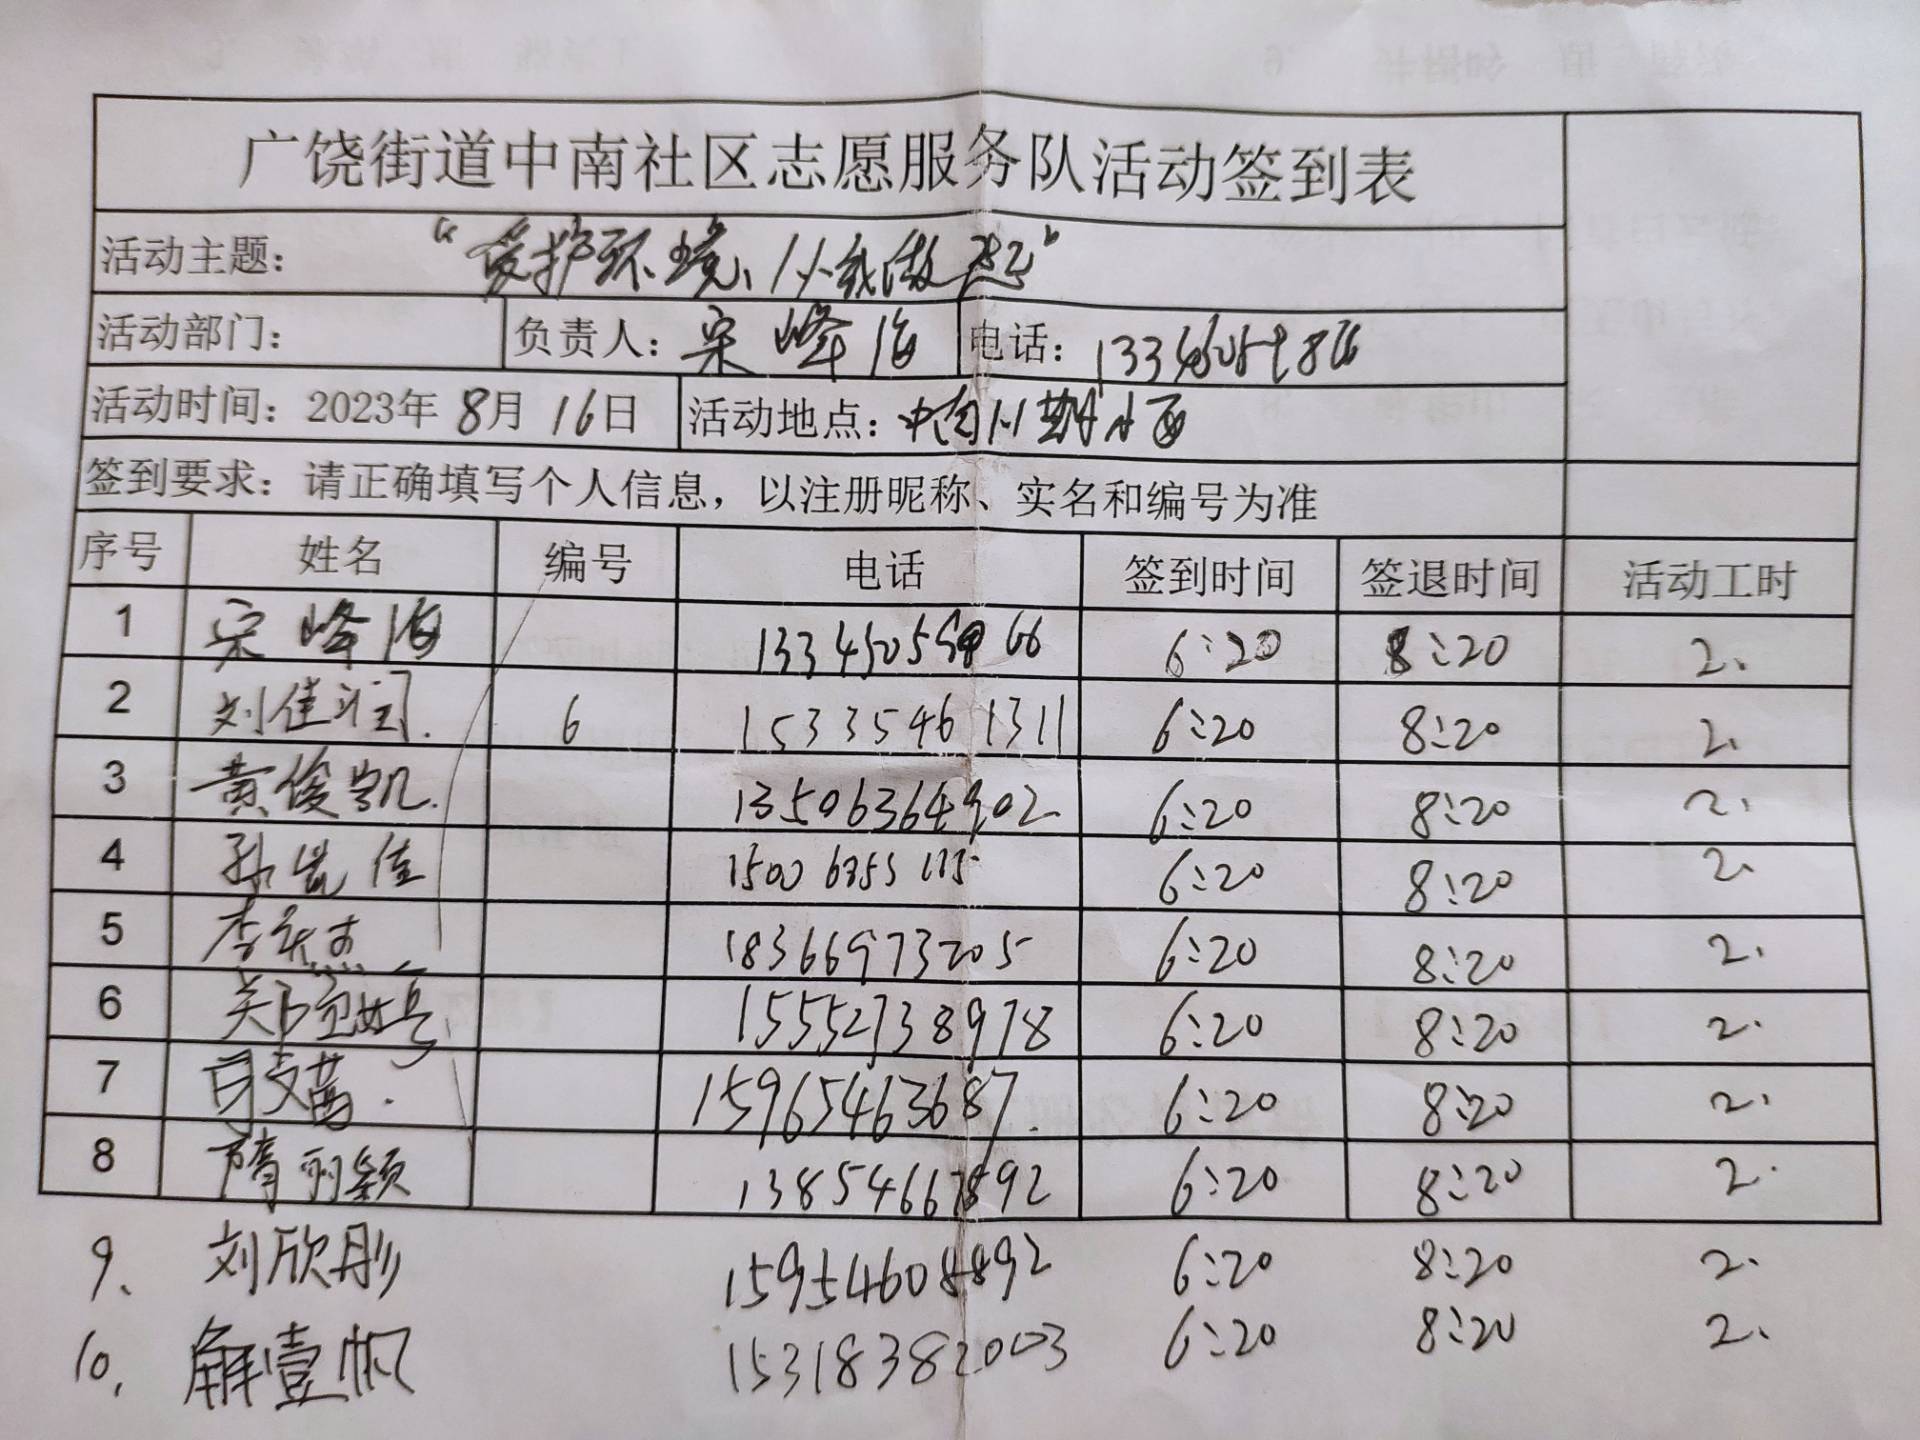 广饶街道中南社区志愿服务队活动签到表
活动主题： “爱护环境、从我做起”
活动部门： 负责人：宋峰海 电话：
活动时间：2023年 8月 16日 活动地点：中南
签到要求：请正确填写个人信息，以注册昵称、实名和编号为准
序号 姓名 编号 电话 签到时间 签退时间 活动工时
1 宋峰海 6:20 8:20 2.
2 刘佳润. 6 15335461311 6:20 8:20 2.
3 黄俊凯. 13506364902 6:20 8:20 2.
4 孙 佳 6:20 8:20 2.
5 李 杰 18366973205 6:20 8:20 2.
6 15552738978 6:20 8:20 2.
7 15965463687. 6:20 8:20 2.
8 隋丽颖 13854667892 6:20 8:20 2.
9、 刘欣彤 15954608892 6:20 8:20 2.
10, 解壹帆 15318382003 6:20 8:20 2.